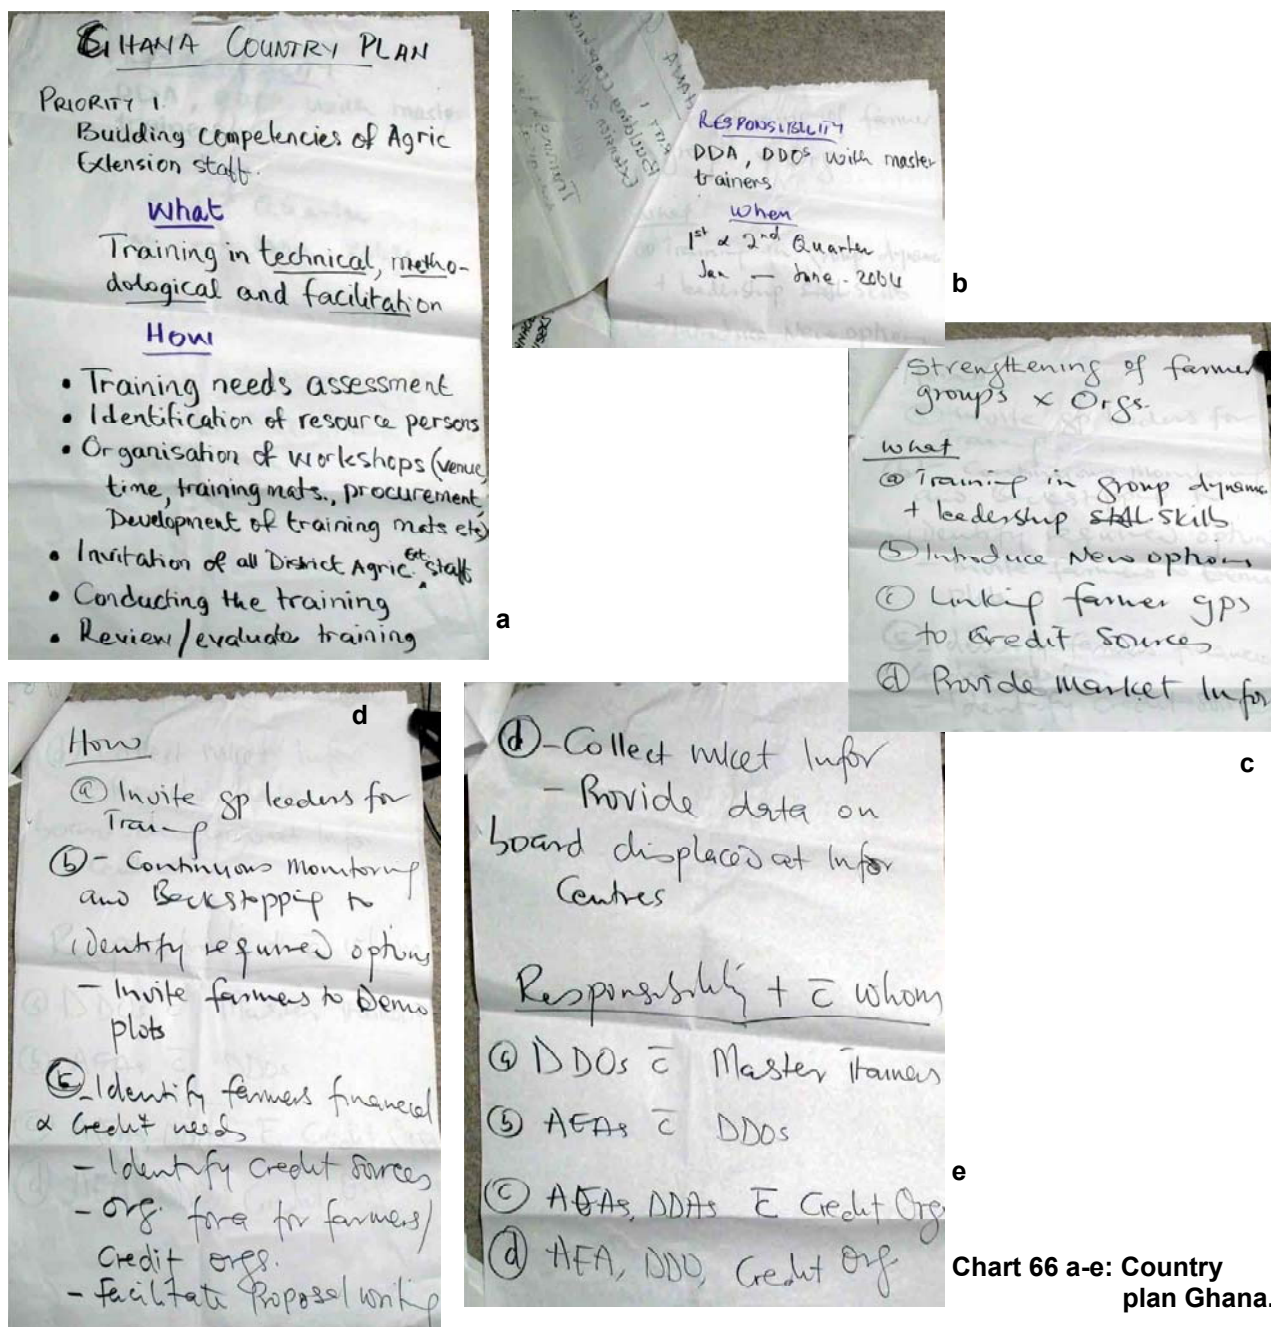 GHANA COUNTRY PLAN
PRIORITY 1.
Building competencies of Agric
Extension staff.
What
Training in technical, metho-
dological and facilitation
How
• Training needs assessment
• Identification of resource persons
• Organisation of workshops (venue,
time, training mats., procurement,
Development of training mats etc)
• Invitation of all District Agric. Ext. staff
• Conducting the training
• Review/evaluate training
a
RESPONSIBILITY
DDA, DDOs with master
trainers
When
1st & 2nd Quarter
Jan — June - 2004
b
Strengthening of farmer
groups x Orgs.
What
(a) Training in group dynamic
+ leadership skills
(b) Introduce New options
(c) Linking farmer gps
to Credit Sources
(d) Provide Market Infor
c
d
How
(a) Invite gp leaders for
Training
(b) - Continuous Monitoring
and Backstopping to
identify required options
- Invite farmers to Demo
plots
(c) - Identify farmers financial
& Credit needs
- Identify Credit Sources
- Org. fora for farmers/
Credit orgs.
- Facilitate Proposal writing
(d) - Collect mket Infor
- Provide data on
board displaced at Infor
Centres
Responsibility + c̄ whom
(a) DDOs c̄ Master trainers
(b) AEAs c̄ DDOs
(c) AEAs, DDAs c̄ Credit Orgs
(d) AEA, DDO, Credit Org
e
Chart 66 a-e: Country
plan Ghana.